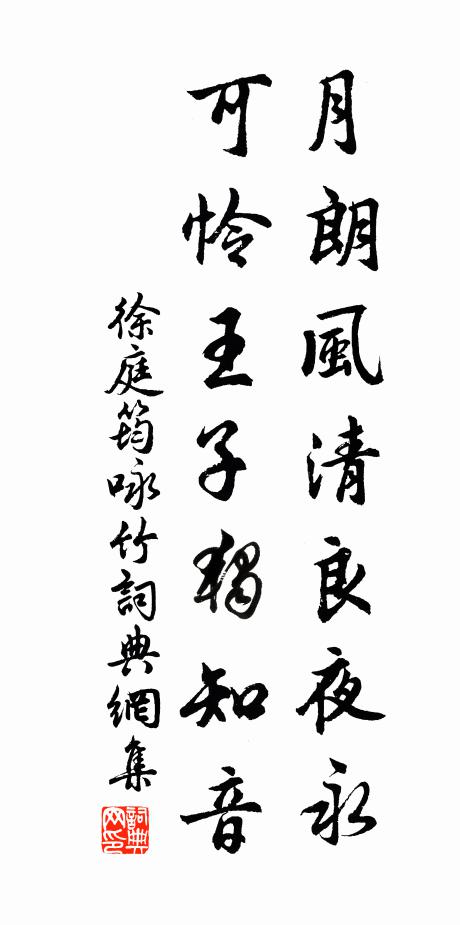 月朗風清良夜永
可怜王子獨知音
徐庭筠咏竹詞典網集
詞典网印